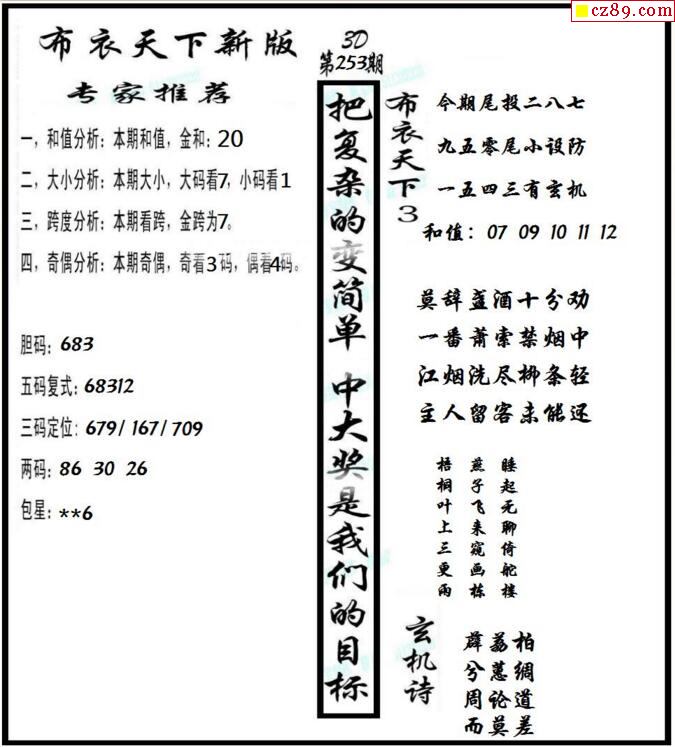 cz89.com
布衣天下新版
专家推荐
一，和值分析：本期和值，金和：20
二，大小分析：本期大小，大码看7，小码看1
三，跨度分析：本期看跨，金跨为7。
四，奇偶分析：本期奇偶，奇看3码，偶看4码。
胆码：683
五码复式：68312
三码定位：679/167/709
两码：86 30 26
包星：**6
3D
第253期
把复杂的变简单 中大奖是我们的目标
布衣天下3
今期尾投二八七
九五零尾小设防
一五四三有玄机
和值：07 09 10 11 12
莫辞盏酒十分劝
一番萧索禁烟中
江烟洗尽柳条轻
主人留客未能还
睡起无聊倚舵楼
燕子飞来窥画栋
梧桐叶上三更雨
玄机诗
薜荔柏
兮蕙绸
周论道
而莫差